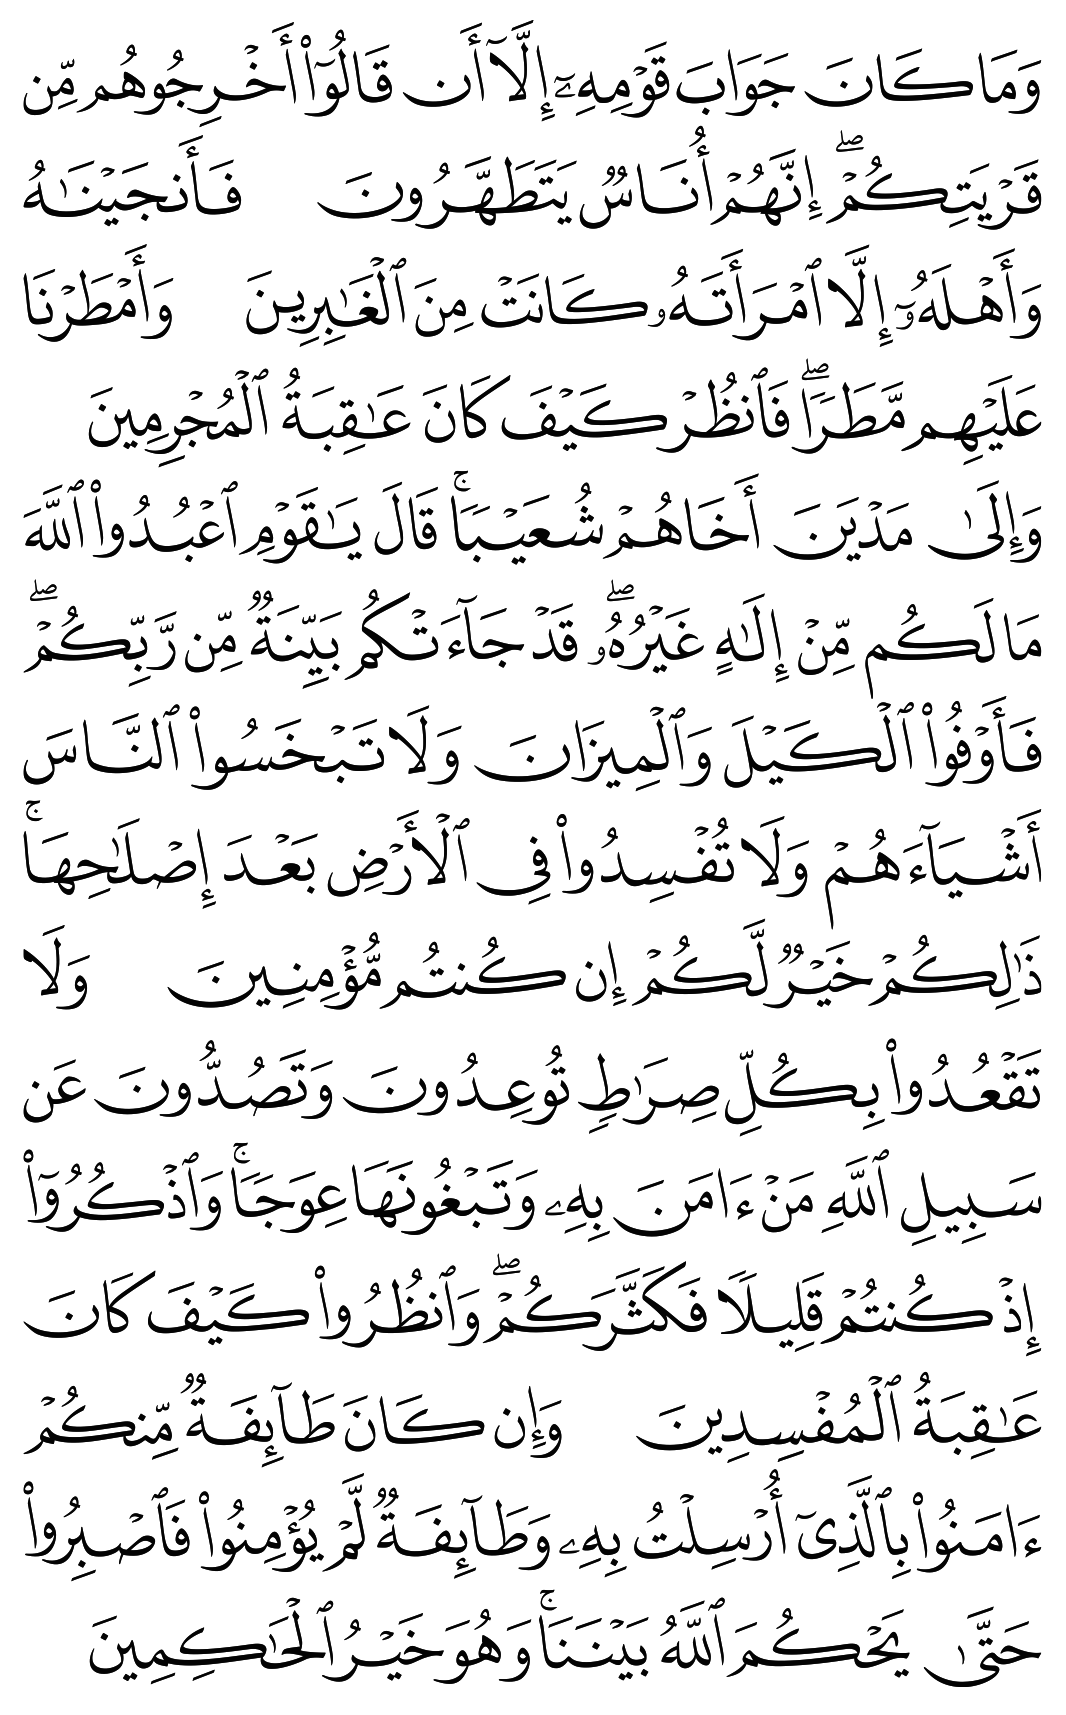 وَمَا كَانَ جَوَابَ قَوْمِهِۦٓ إِلَّآ أَن قَالُوٓا۟ أَخْرِجُوهُم مِّن
قَرْيَتِكُمْ ۖ إِنَّهُمْ أُنَاسٌ يَتَطَهَّرُونَ فَأَنجَيْنَـٰهُ
وَأَهْلَهُۥٓ إِلَّا ٱمْرَأَتَهُۥ كَانَتْ مِنَ ٱلْغَـٰبِرِينَ وَأَمْطَرْنَا
عَلَيْهِم مَّطَرًا ۖ فَٱنظُرْ كَيْفَ كَانَ عَـٰقِبَةُ ٱلْمُجْرِمِينَ
وَإِلَىٰ مَدْيَنَ أَخَاهُمْ شُعَيْبًا ۚ قَالَ يَـٰقَوْمِ ٱعْبُدُوا۟ ٱللَّهَ
مَا لَكُم مِّنْ إِلَـٰهٍ غَيْرُهُۥ ۖ قَدْ جَآءَتْكُم بَيِّنَةٌ مِّن رَّبِّكُمْ ۖ
فَأَوْفُوا۟ ٱلْكَيْلَ وَٱلْمِيزَانَ وَلَا تَبْخَسُوا۟ ٱلنَّاسَ
أَشْيَآءَهُمْ وَلَا تُفْسِدُوا۟ فِى ٱلْأَرْضِ بَعْدَ إِصْلَـٰحِهَا ۚ
ذَٰلِكُمْ خَيْرٌ لَّكُمْ إِن كُنتُم مُّؤْمِنِينَ وَلَا
تَقْعُدُوا۟ بِكُلِّ صِرَٰطٍ تُوعِدُونَ وَتَصُدُّونَ عَن
سَبِيلِ ٱللَّهِ مَنْ ءَامَنَ بِهِۦ وَتَبْغُونَهَا عِوَجًا ۚ وَٱذْكُرُوٓا۟
إِذْ كُنتُمْ قَلِيلًا فَكَثَّرَكُمْ ۖ وَٱنظُرُوا۟ كَيْفَ كَانَ
عَـٰقِبَةُ ٱلْمُفْسِدِينَ وَإِن كَانَ طَآئِفَةٌ مِّنكُمْ
ءَامَنُوا۟ بِٱلَّذِىٓ أُرْسِلْتُ بِهِۦ وَطَآئِفَةٌ لَّمْ يُؤْمِنُوا۟ فَٱصْبِرُوا۟
حَتَّىٰ يَحْكُمَ ٱللَّهُ بَيْنَنَا ۚ وَهُوَ خَيْرُ ٱلْحَـٰكِمِينَ